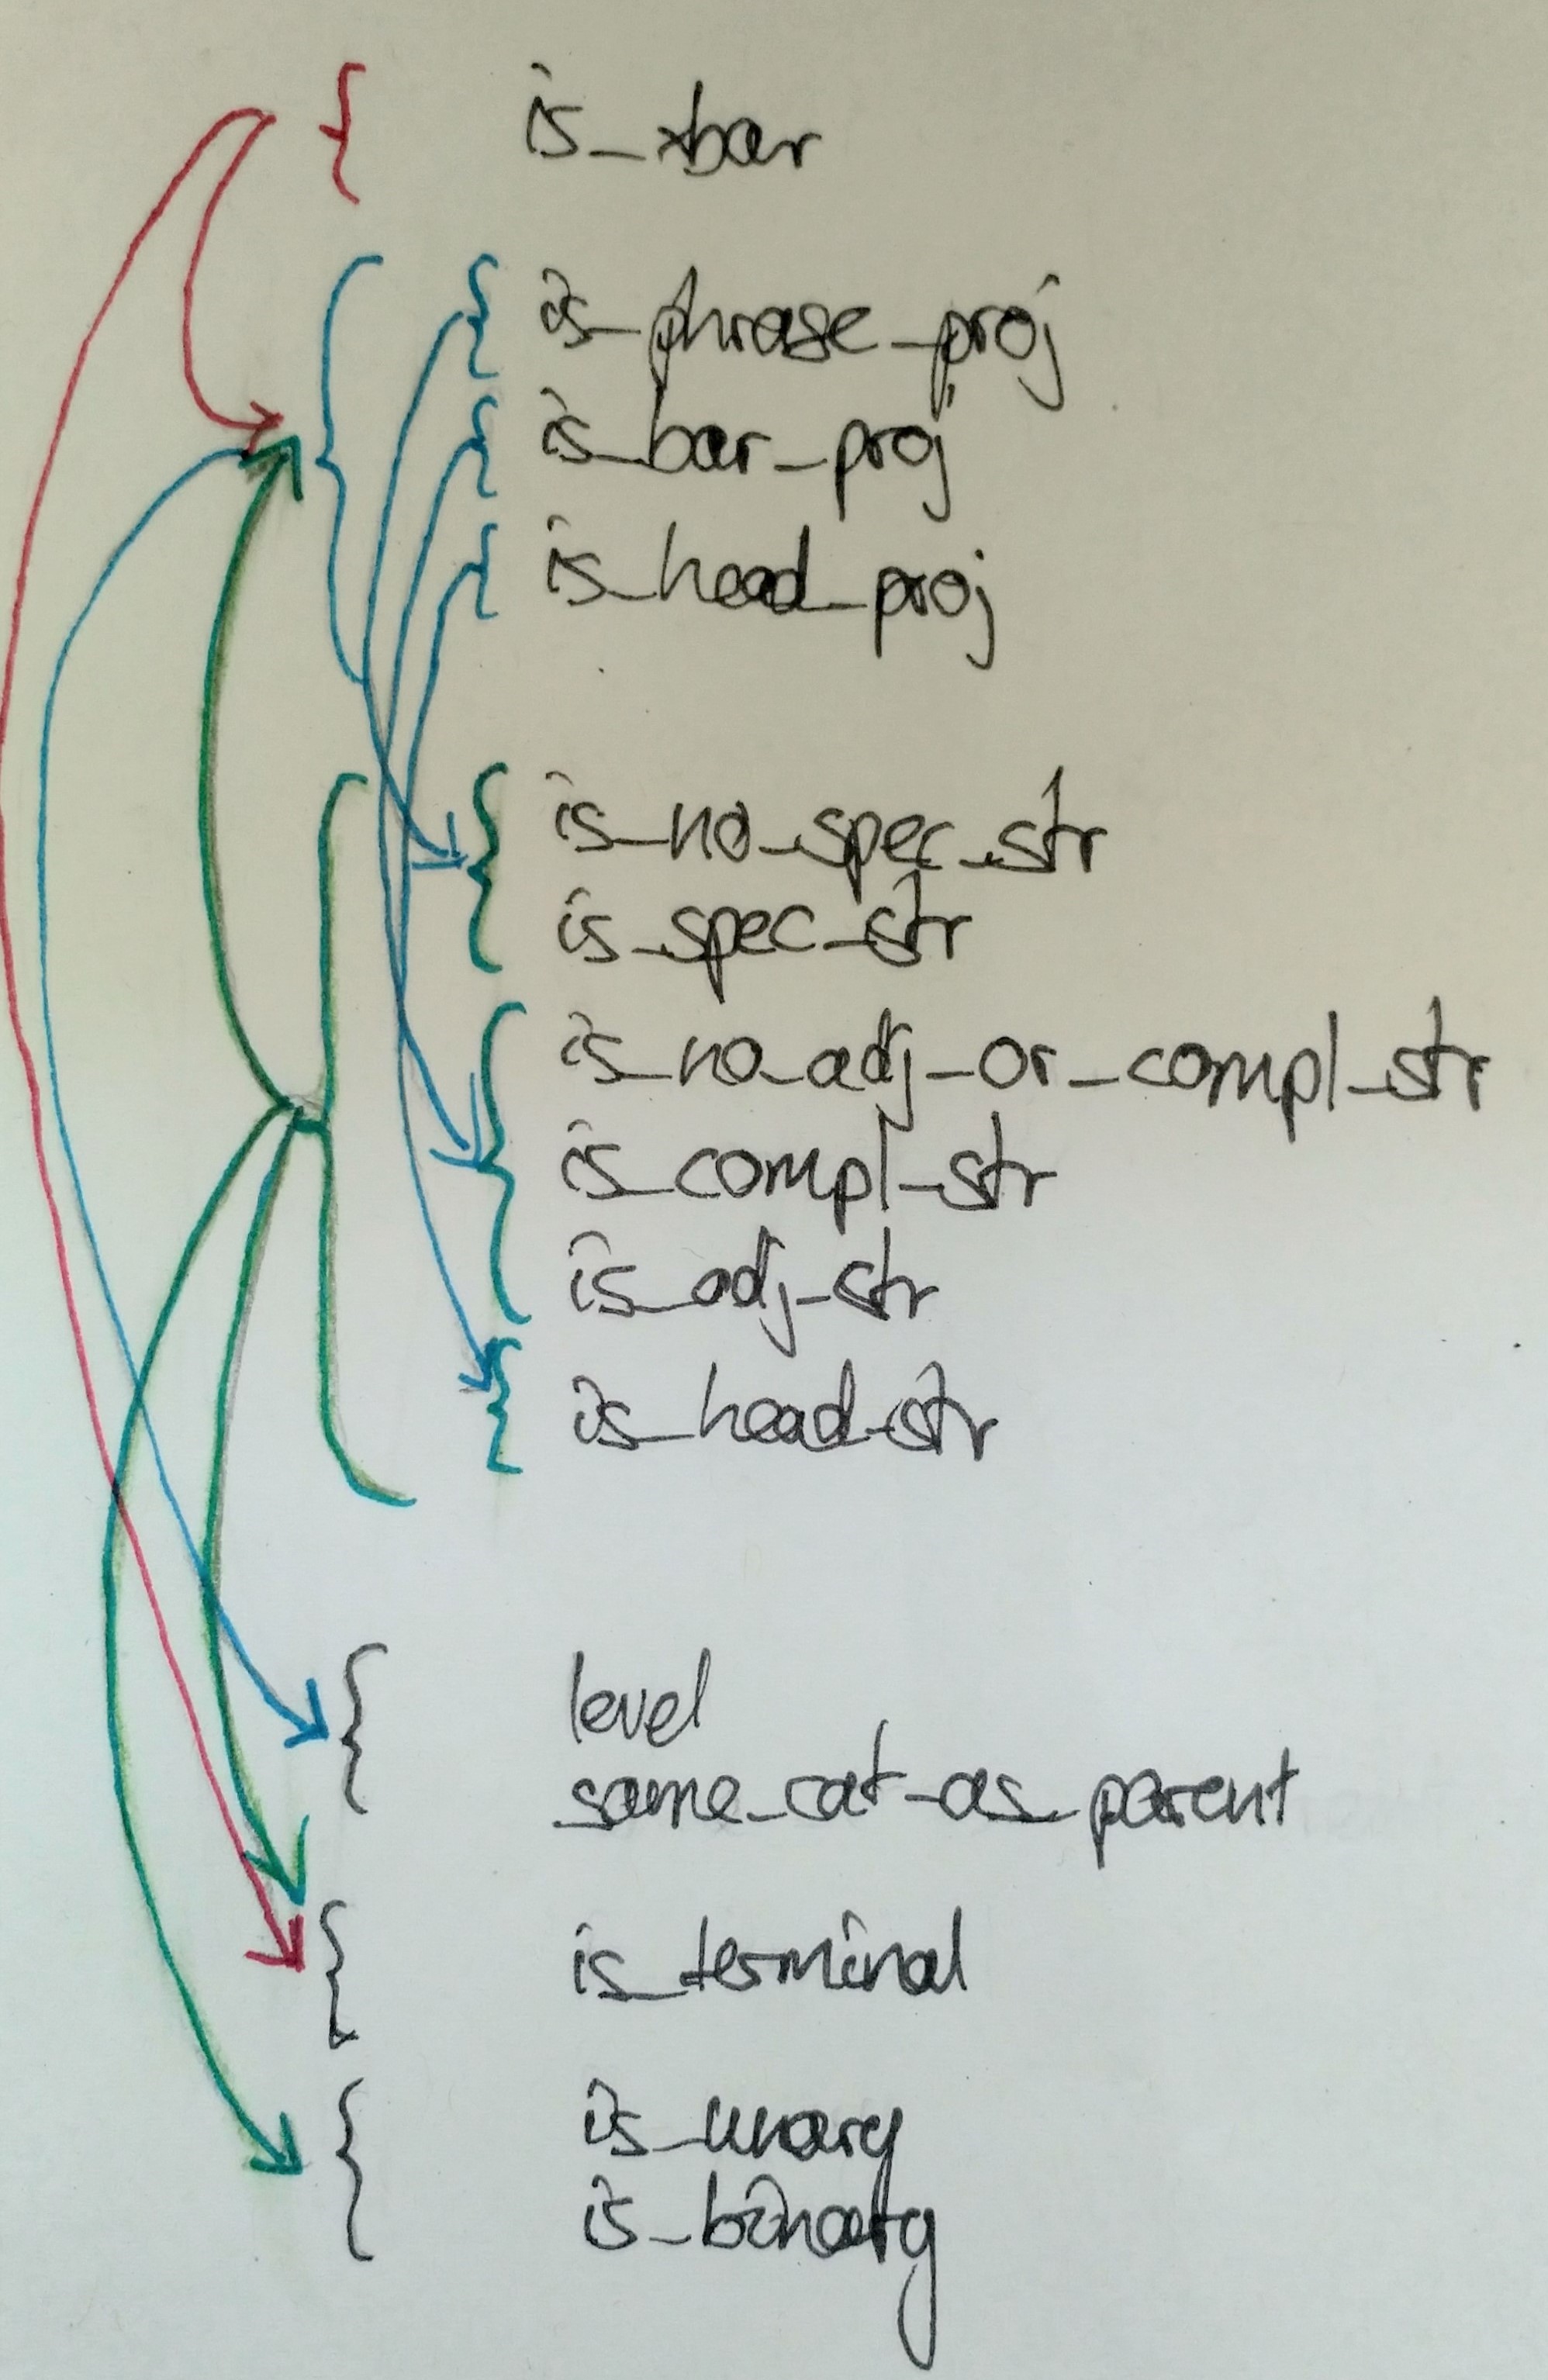 is_xbar
is_phrase_proj
is_bar_proj
is_head_proj
is_no_spec_str
is_spec_str
is_no_adj_or_compl_str
is_compl_str
is_adj_str
is_head_str
level
same_cat_as_parent
is_terminal
is_unary
is_binary